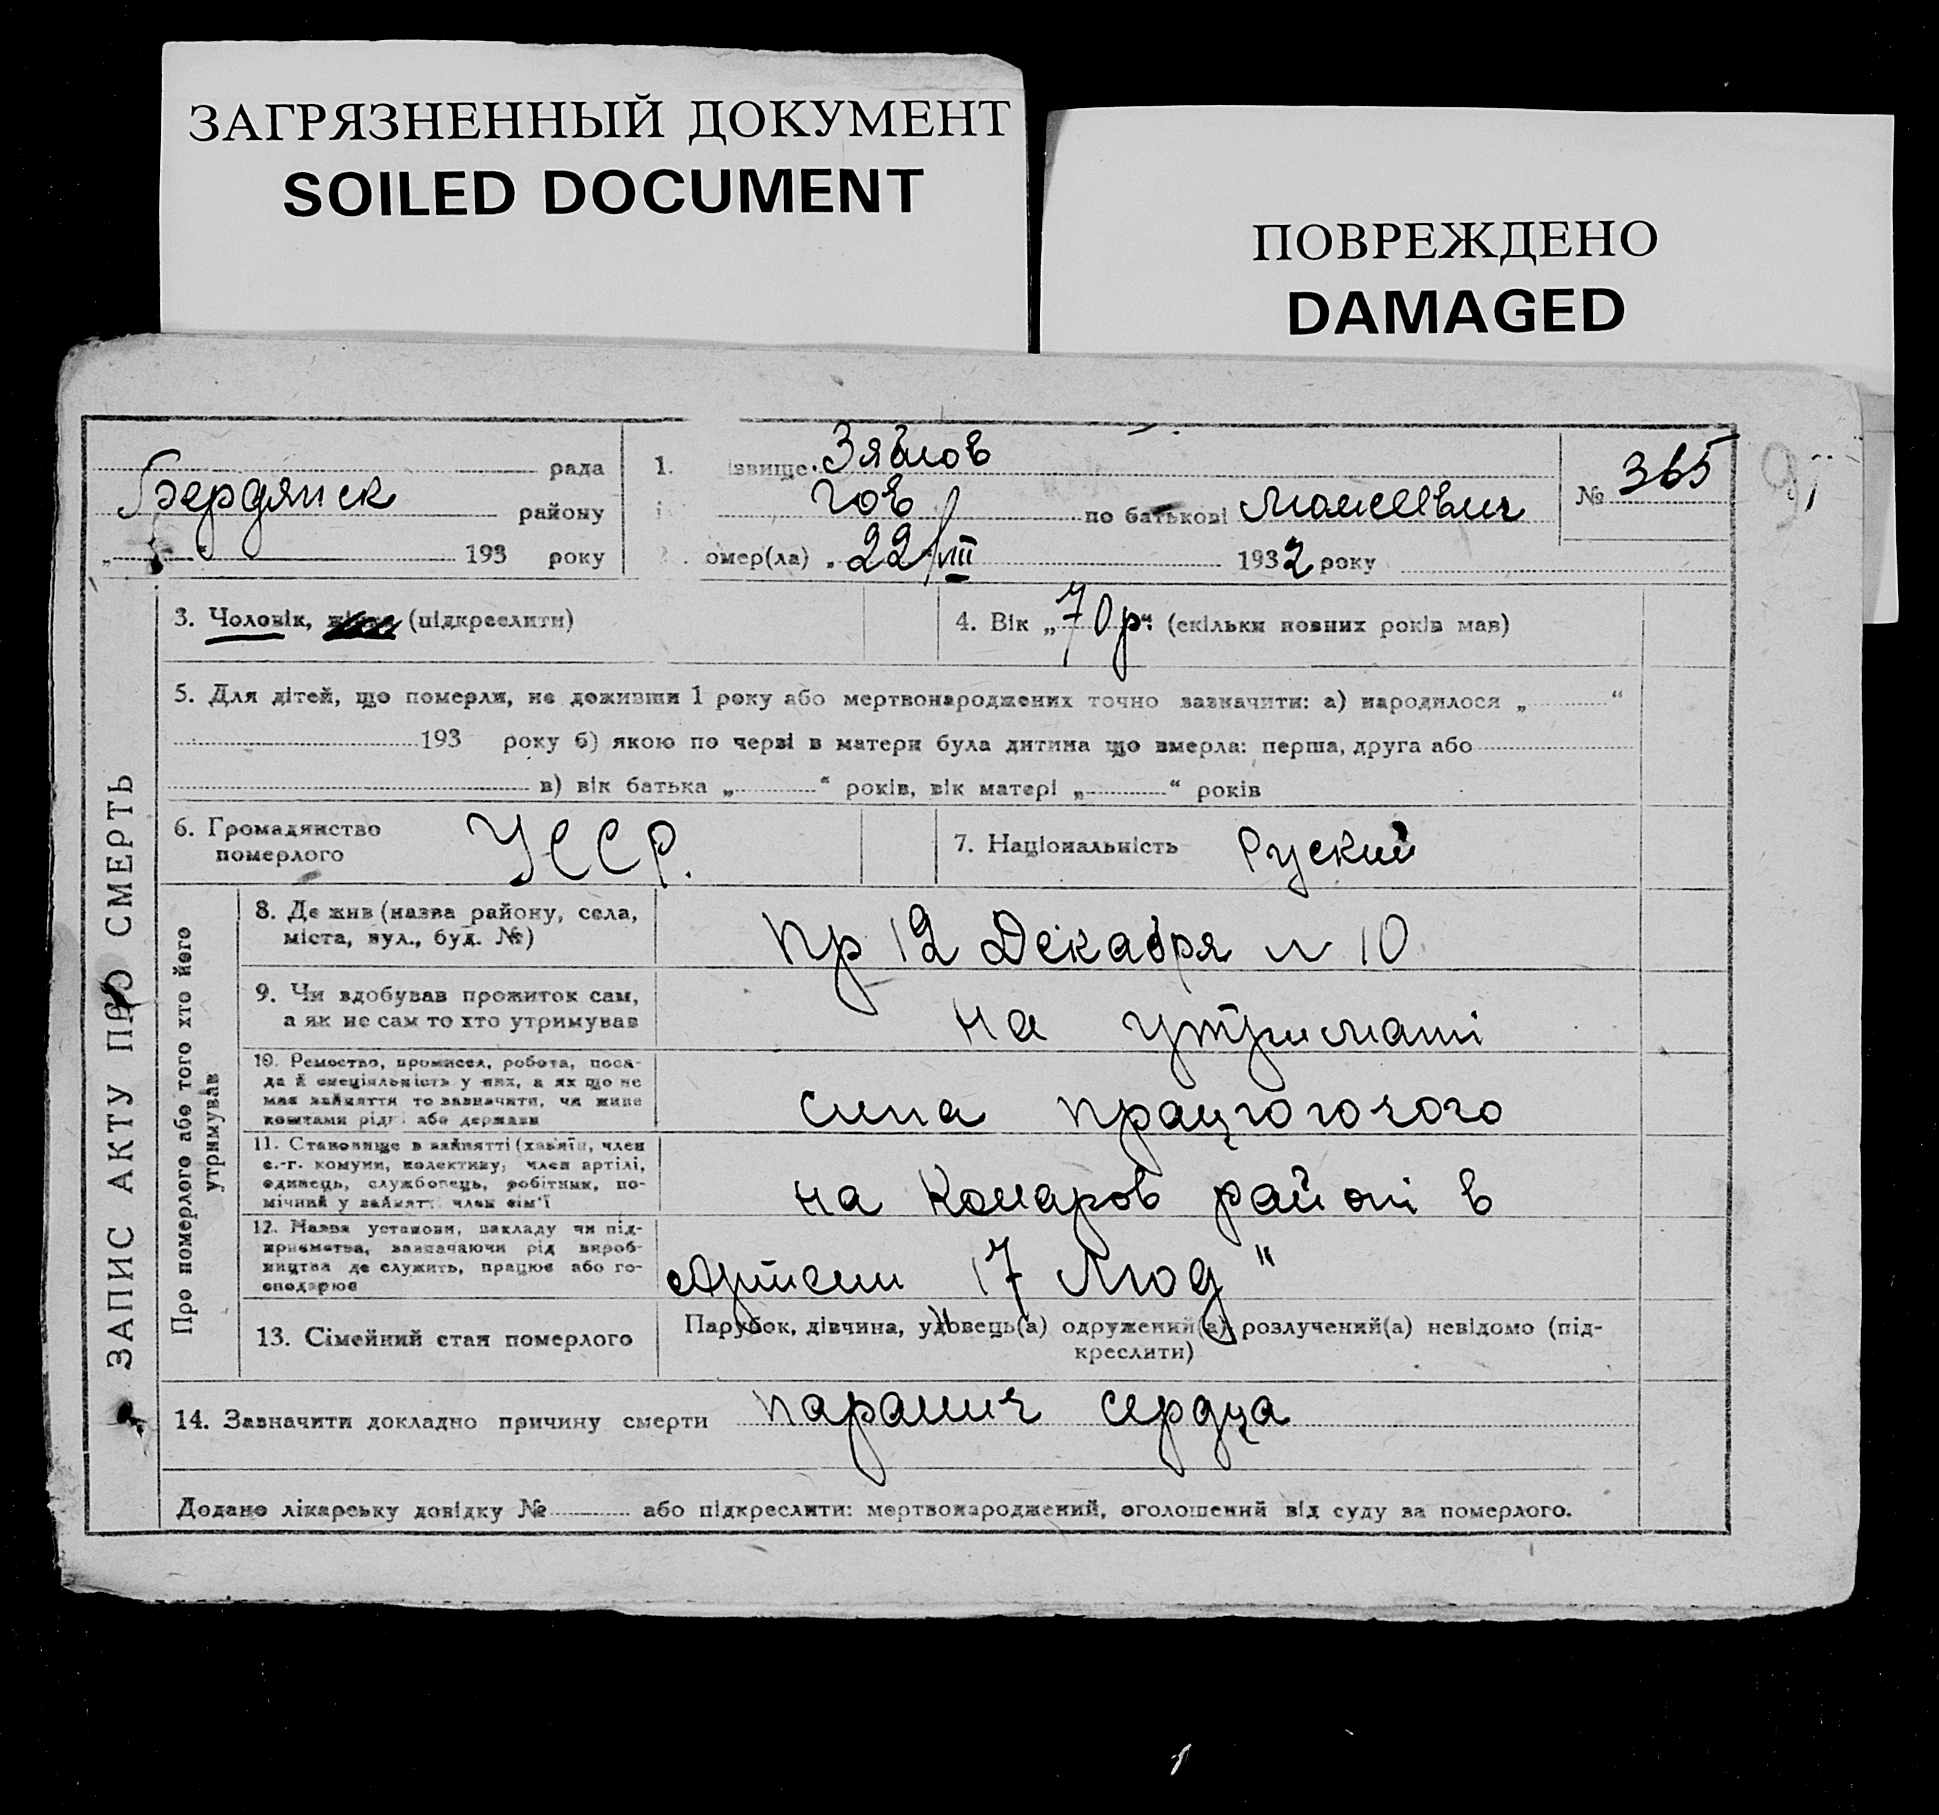 ЗАГРЯЗНЕННЫЙ ДОКУМЕНТ
SOILED DOCUMENT
ПОВРЕЖДЕНО
DAMAGED
рада
Бердянск району
193 року
1. ізвище Зяблов
Іов по батькові Моисеевич
омер(ла) „ 22/VIII 1932 року
№ 365
3. Чоловік, (підкреслити)
4. Вік „70 р“ (скільки повних років мав)
5. Для дітей, що померли, не доживши 1 року або мертвонароджених точно зазначити: а) народилося „ “
193 року б) якою по черзі в матери була дитина що вмерла: перша, друга або
в) вік батька „ “ років, вік матері „ “ років
6. Громадянство
померлого
УССР.
7. Національність Руский
ЗАПИС АКТУ ПРО СМЕРТЬ
Про померлого або того хто його
утримував
8. Де жив (назва району, села,
міста, вул., буд. №)
пр 12 Декабря № 10
9. Чи здобував прожиток сам,
а як не сам то хто утримував
на утримані
10. Ремество, промисел, робота, поса-
да й спеціяльність у них, а як що не
мав зайняття то зазначити, чи живе
коштами рідн або держави
сина працюючого
11. Становище в зайнятті (хазяїн, член
с.-г. комуни, колективу, член артілі,
одинець, службовець, робітник, по-
мічний у зайнятт член сім'ї
на Комаров районі в
12. Назва установи, закладу чи під-
приємства, зазначаючи рід вироб-
ництва де служить, працює або го-
сподарює
Артели 17 Мюд"
13. Сімейний стан померлого
Парубок, дівчина, удовець(а) одружений(а) розлучений(а) невідомо (під-
креслити)
14. Зазначити докладно причину смерти паралич сердца
Додано лікарську довідку № або підкреслити: мертвонароджений, оголошений від суду за померлого.